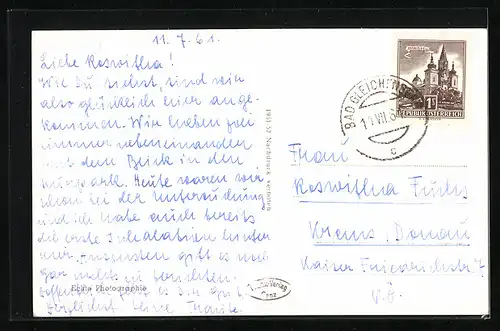 11. 7. 61.
Liebe Roswitha!
Wie Du siehst, sind wir
also glücklich hier ange-
kommen. Wir haben zwei
Zimmer nebeneinander
mit dem Blick in den
Kurpark. Heute waren wir
schon bei der Untersuchung
und ich habe auch bereits
die erste Inhalation hinter
mir. Ansonsten gibt es noch
gar nichts zu berichten.
Hoffentlich geht es Dir gut.
Herzlichst Deine Traute.
Echte Photographie
1951/52 Nachdruck verboten
Verlag
Graz
BAD GLEICHENBERG
c
1S
REPUBLIK ÖSTERREICH
Frau
Roswitha Fuchs
Krems, Donau
Kaiser Friedrichstr. 7
N.Ö.